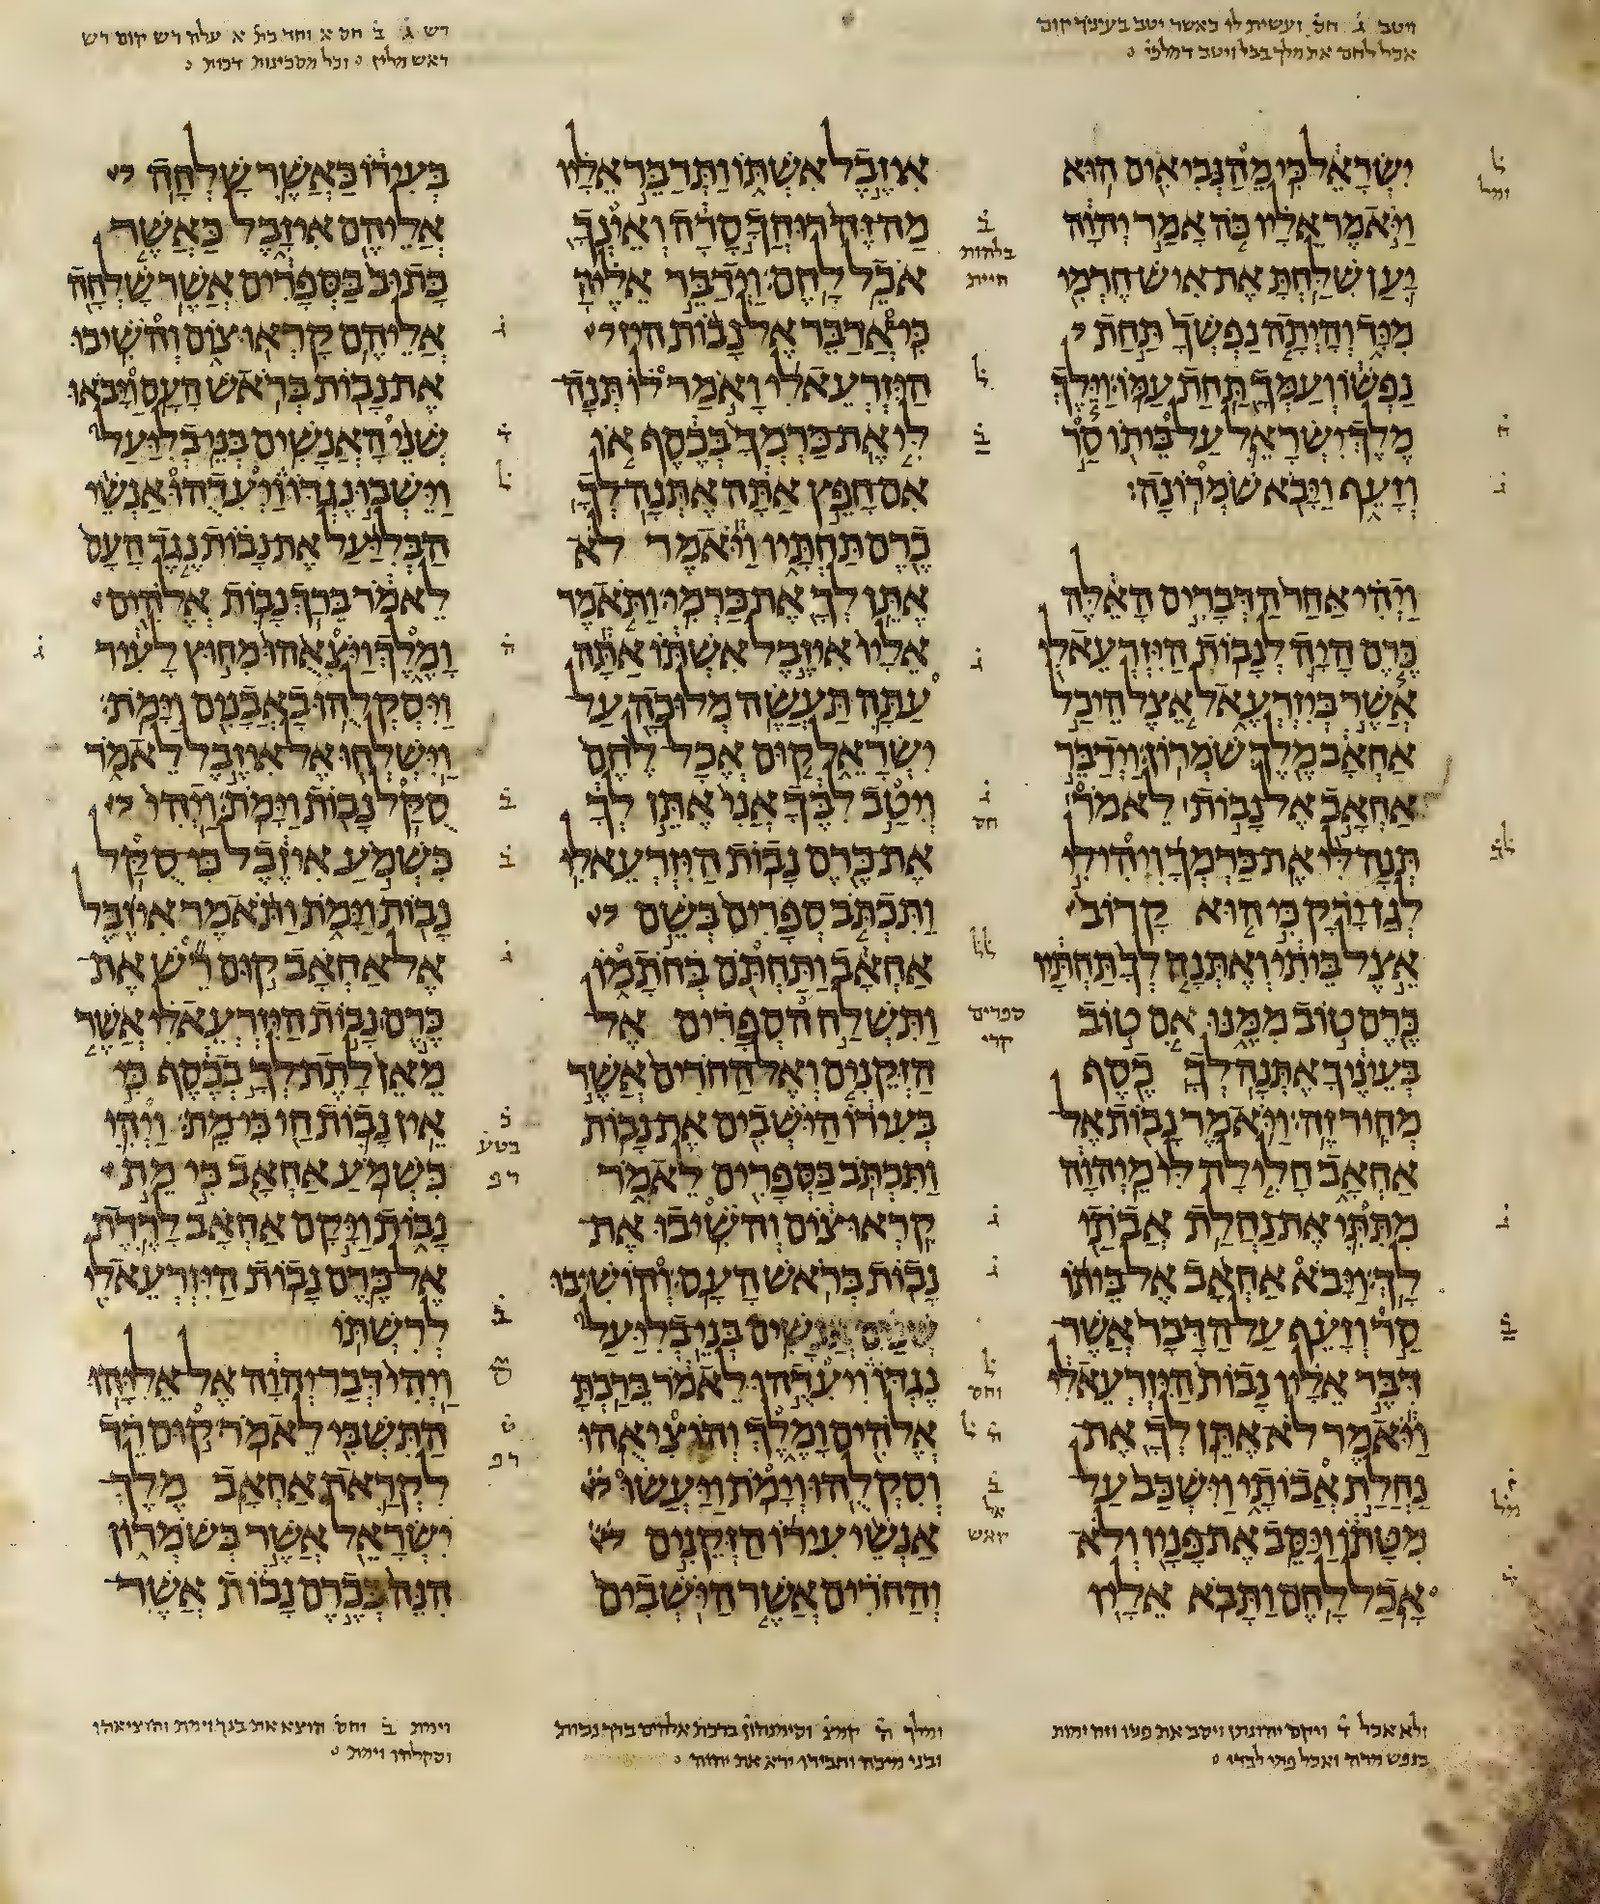 וייטב ג̇ חס̇ ועשית לו כאשר ייטב בעיניך קום
אכל לחם את מלך בבל וייטב דמלכי
רש ג̇ ב̇ חס א וחד כת א עלה רש קום רש
ראש מלין וכל מסכינות דכות
יִשְׂרָאֵל כִּי מֵהַנְּבִיאִים הוּא
וַיֹּאמֶר אֵלָיו כֹּה אָמַר יְהוָה
יַעַן שִׁלַּחְתָּ אֶת אִישׁ חֶרְמִי
מִיָּד וְהָיְתָה נַפְשְׁךָ תַּחַת
נַפְשׁוֹ וְעַמְּךָ תַּחַת עַמּוֹ׃ וַיֵּלֶךְ
מֶלֶךְ יִשְׂרָאֵל עַל בֵּיתוֹ סַר
וְזָעֵף וַיָּבֹא שֹׁמְרוֹנָה׃
וַיְהִי אַחַר הַדְּבָרִים הָאֵלֶּה
כֶּרֶם הָיָה לְנָבוֹת הַיִּזְרְעֵאלִי
אֲשֶׁר בְּיִזְרְעֶאל אֵצֶל הֵיכַל
אַחְאָב מֶלֶךְ שֹׁמְרוֹן׃ וַיְדַבֵּר
אַחְאָב אֶל נָבוֹת לֵאמֹר
תְּנָה לִּי אֶת כַּרְמְךָ וִיהִי לִי
לְגַן יָרָק כִּי הוּא קָרוֹב
אֵצֶל בֵּיתִי וְאֶתְּנָה לְךָ תַּחְתָּיו
כֶּרֶם טוֹב מִמֶּנּוּ אִם טוֹב
בְּעֵינֶיךָ אֶתְּנָה לְךָ כֶסֶף
מְחִיר זֶה׃ וַיֹּאמֶר נָבוֹת אֶל
אַחְאָב חָלִילָה לִּי מֵיהוָה
מִתִּתִּי אֶת נַחֲלַת אֲבֹתַי
לָךְ׃ וַיָּבֹא אַחְאָב אֶל בֵּיתוֹ
סַר וְזָעֵף עַל הַדָּבָר אֲשֶׁר
דִּבֶּר אֵלָיו נָבוֹת הַיִּזְרְעֵאלִי
וַיֹּאמֶר לֹא אֶתֵּן לְךָ אֶת
נַחֲלַת אֲבוֹתָי וַיִּשְׁכַּב עַל
מִטָּתוֹ וַיַּסֵּב אֶת פָּנָיו וְלֹא
אָכַל לָחֶם׃ וַתָּבֹא אֵלָיו
אִיזֶבֶל אִשְׁתּוֹ וַתְּדַבֵּר אֵלָיו
מַה זֶּה רוּחֲךָ סָרָה וְאֵינְךָ
אֹכֵל לָחֶם׃ וַיְדַבֵּר אֵלֶיהָ
כִּי אֲדַבֵּר אֶל נָבוֹת היז
הַיִּזְרְעֵאלִי וָאֹמַר לוֹ תְּנָה
לִּי אֶת כַּרְמְךָ בְּכֶסֶף אוֹ
אִם חָפֵץ אַתָּה אֶתְּנָה לְךָ
כֶרֶם תַּחְתָּיו וַיֹּאמֶר לֹא
אֶתֵּן לְךָ אֶת כַּרְמִי׃ וַתֹּאמֶר
אֵלָיו אִיזֶבֶל אִשְׁתּוֹ אַתָּה
עַתָּה תַּעֲשֶׂה מְלוּכָה עַל
יִשְׂרָאֵל קוּם אֱכָל לֶחֶם
וְיִטַב לִבֶּךָ אֲנִי אֶתֵּן לְךָ
אֶת כֶּרֶם נָבוֹת הַיִּזְרְעֵאלִי׃
וַתִּכְתֹּב סְפָרִים בְּשֵׁם
אַחְאָב וַתַּחְתֹּם בְּחֹתָמוֹ
וַתִּשְׁלַח הסְפָרִים אֶל
הַזְּקֵנִים וְאֶל הַחֹרִים אֲשֶׁר
בְּעִירוֹ הַיֹּשְׁבִים אֶת נָבוֹת׃
וַתִּכְתֹּב בַּסְּפָרִים לֵאמֹר
קִרְאוּ צוֹם וְהֹשִׁיבוּ אֶת
נָבוֹת בְּרֹאשׁ הָעָם׃ וְהוֹשִׁיבוּ
שְׁנַיִם אֲנָשִׁים בְּנֵי בְלִיַּעַל
נֶגְדּוֹ וִיעִדֻהוּ לֵאמֹר בֵּרַכְתָּ
אֱלֹהִים וָמֶלֶךְ וְהוֹצִיאֻהוּ
וְסִקְלֻהוּ וְיָמֹת׃ וַיַּעֲשׂוּ
אַנְשֵׁי עִירוֹ הַזְּקֵנִים
וְהַחֹרִים אֲשֶׁר הַיֹּשְׁבִים
בְּעִירוֹ כַּאֲשֶׁר שָׁלְחָה
אֲלֵיהֶם אִיזָבֶל כַּאֲשֶׁר
כָּתוּב בַּסְּפָרִים אֲשֶׁר שָׁלְחָה
אֲלֵיהֶם׃ קָרְאוּ צוֹם וְהֹשִׁיבוּ
אֶת נָבוֹת בְּרֹאשׁ הָעָם׃ וַיָּבֹאוּ
שְׁנֵי הָאֲנָשִׁים בְּנֵי בְלִיַּעַל
וַיֵּשְׁבוּ נֶגְדּוֹ וַיְעִדֻהוּ אַנְשֵׁי
הַבְּלִיַּעַל אֶת נָבוֹת נֶגֶד הָעָם
לֵאמֹר בֵּרַךְ נָבוֹת אֱלֹהִים
וָמֶלֶךְ וַיֹּצִאֻהוּ מִחוּץ לָעִיר
וַיִּסְקְלֻהוּ בָאֲבָנִים וַיָּמֹת׃
וַיִּשְׁלְחוּ אֶל אִיזֶבֶל לֵאמֹר
סֻקַּל נָבוֹת וַיָּמֹת׃ וַיְהִי
כִּשְׁמֹעַ אִיזֶבֶל כִּי סֻקַּל
נָבוֹת וַיָּמֹת וַתֹּאמֶר אִיזֶבֶל
אֶל אַחְאָב קוּם רֵשׁ אֶת
כֶּרֶם נָבוֹת הַיִּזְרְעֵאלִי אֲשֶׁר
מֵאֵן לָתֶת לְךָ בְכֶסֶף כִּי
אֵין נָבוֹת חַי כִּי מֵת׃ וַיְהִי
כִּשְׁמֹעַ אַחְאָב כִּי מֵת
נָבוֹת וַיָּקָם אַחְאָב לָרֶדֶת
אֶל כֶּרֶם נָבוֹת הַיִּזְרְעֵאלִי
לְרִשְׁתּוֹ׃
וַיְהִי דְּבַר יְהוָה אֶל אֵלִיָּהוּ
הַתִּשְׁבִּי לֵאמֹר׃ קוּם רֵד
לִקְרַאת אַחְאָב מֶלֶךְ
יִשְׂרָאֵל אֲשֶׁר בְּשֹׁמְרוֹן
הִנֵּה בְּכֶרֶם נָבוֹת אֲשֶׁר
ולא אכל ד̇ ויקם יהונתן ויסב את פניו וזה ימות
בנפש מרה ואכל פתי לבדי
ומלך ה̇ קמצ̇ וסימנהון ברכת אלהים ברך נבות
ובני מיכה וחבירו ירא את יהוה
וימת ב̇ וחס̇ הוצא את בנך וימת והוציאהו
וסקלהו וימת